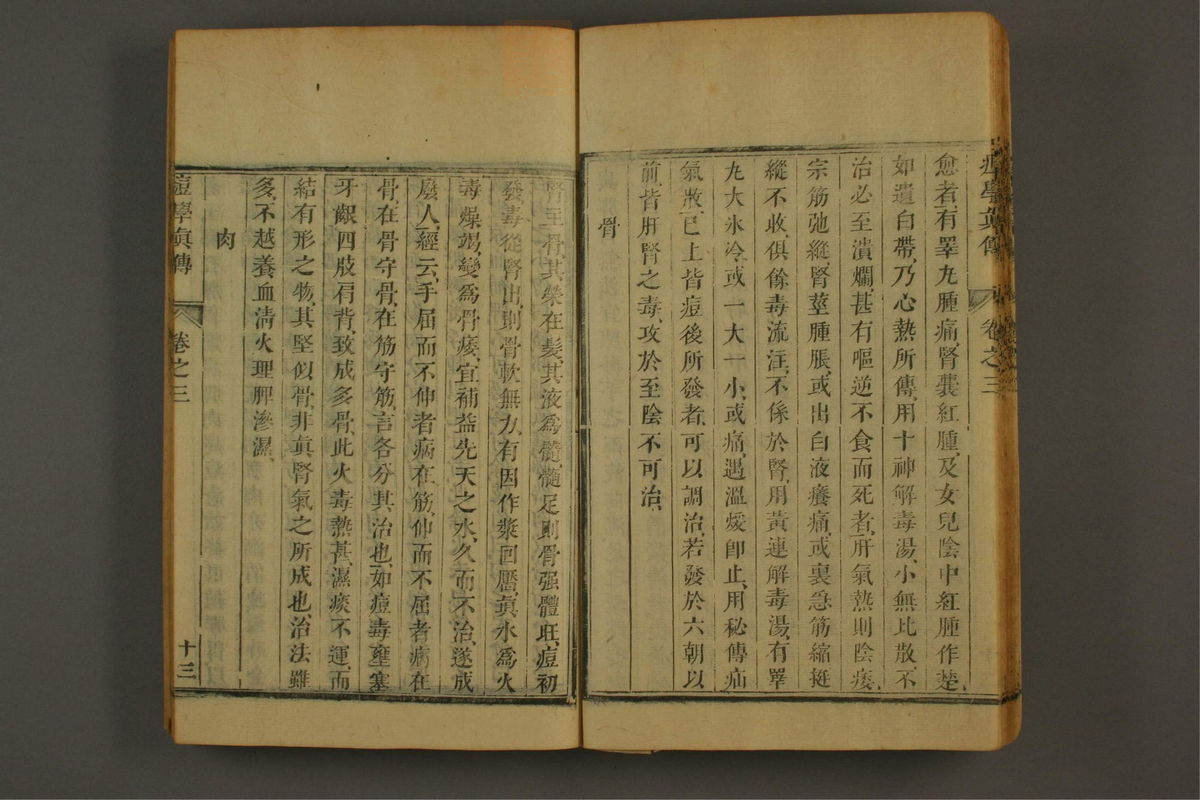 痘學眞傳 卷之三
愈者有睪丸腫痛腎囊紅腫及女兒陰中紅腫作楚
如遺白帶乃心熱所傳用十神解毒湯小無比散不
治必至潰爛甚有嘔逆不食而死者肝氣熱則陰痿
宗筋弛縱腎莖腫脹或出白液癢痛或裏急筋縮挺
縱不收俱餘毒流注不係於腎用黃連解毒湯有睪
丸大氷冷或一大一小或痛遇溫煖卽止用秘傳疝
氣散已上皆痘後所發者可以調治若發於六朝以
前皆肝腎之毒攻於至陰不可治
骨
腎主骨其榮在髮其液爲髓髓足則骨强體旺痘初
發毒從腎出則骨軟無力有因作漿回靨眞水爲火
毒燥竭變爲骨痿宜補益先天之水久而不治遂成
廢人經云手屈而不伸者病在筋伸而不屈者病在
骨在骨守骨在筋守筋言各分其治也如痘毒壅塞
牙齦四肢肩背致成多骨此火毒熱甚濕痰不運而
結有形之物其堅似骨非眞腎氣之所成也治法雖
多不越養血淸火理脾滲濕
肉
痘學眞傳 卷之三 十三